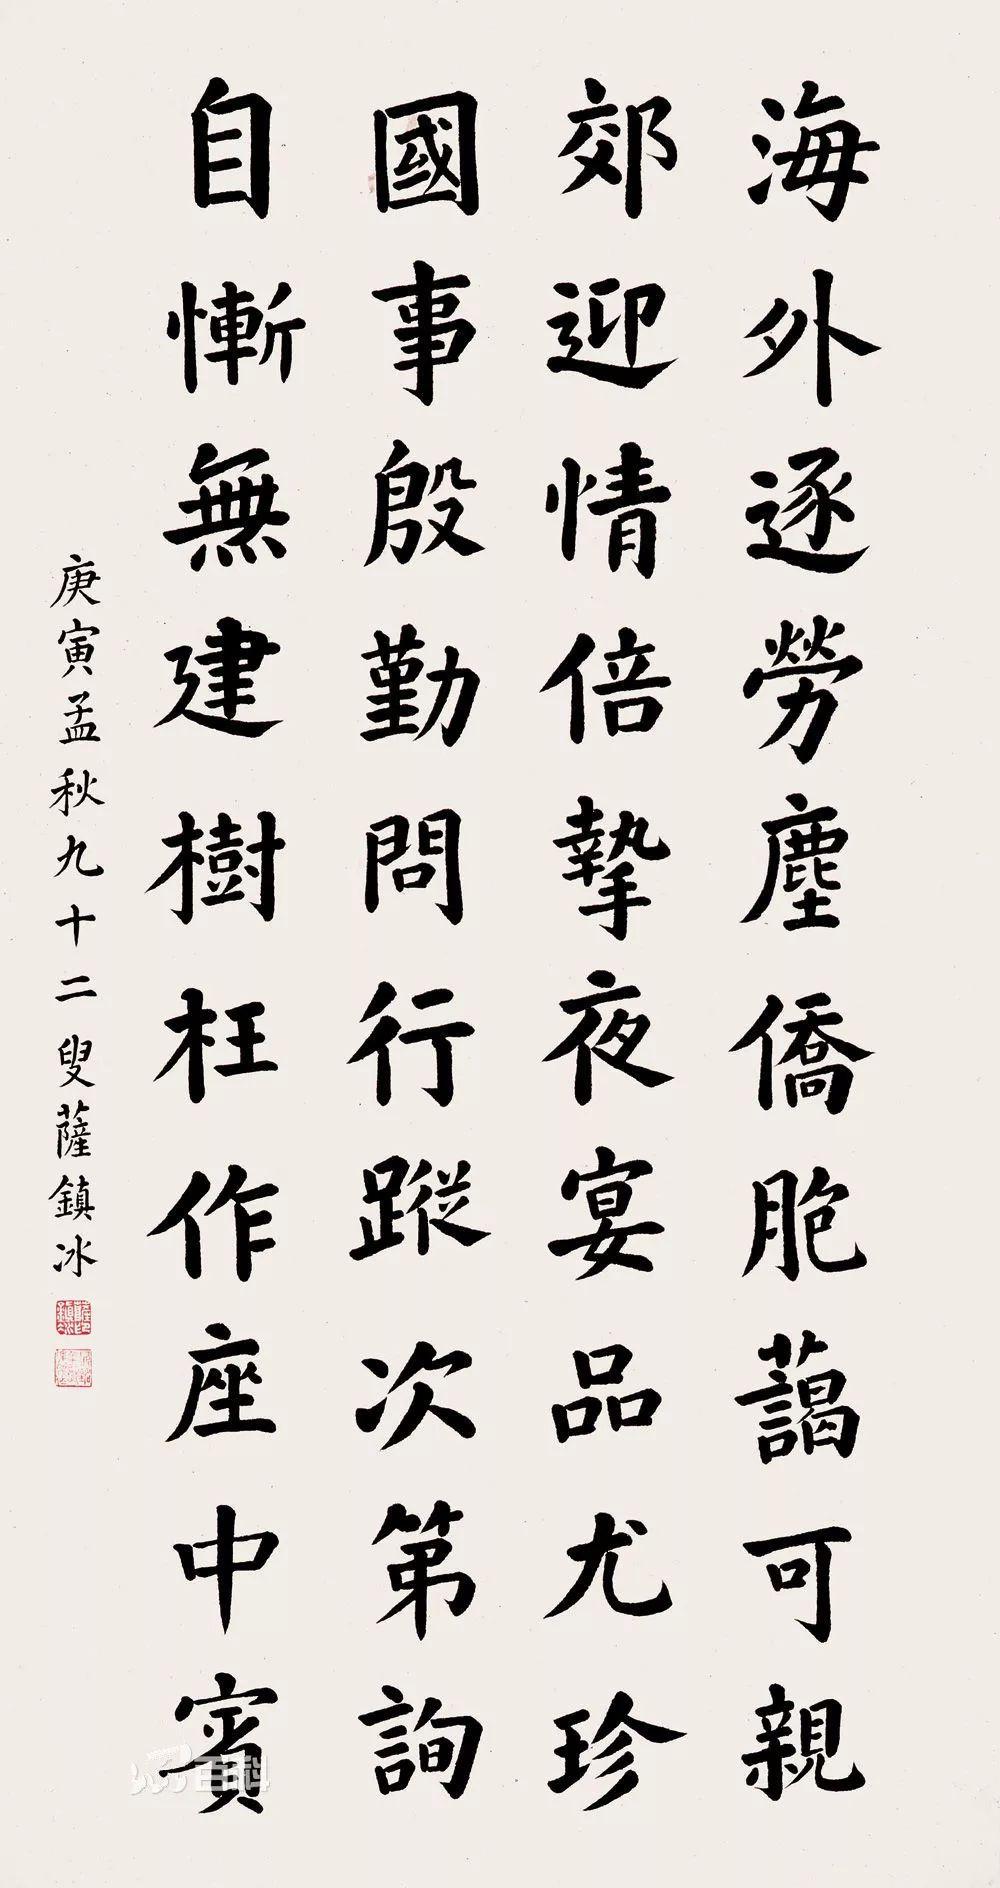 海外逐勞塵僑胞藹可親
郊迎情倍摯夜宴品尤珍
國事殷勤問行蹤次第詢
自慚無建樹枉作座中賓
庚寅孟秋九十二叟薩鎮冰
百科